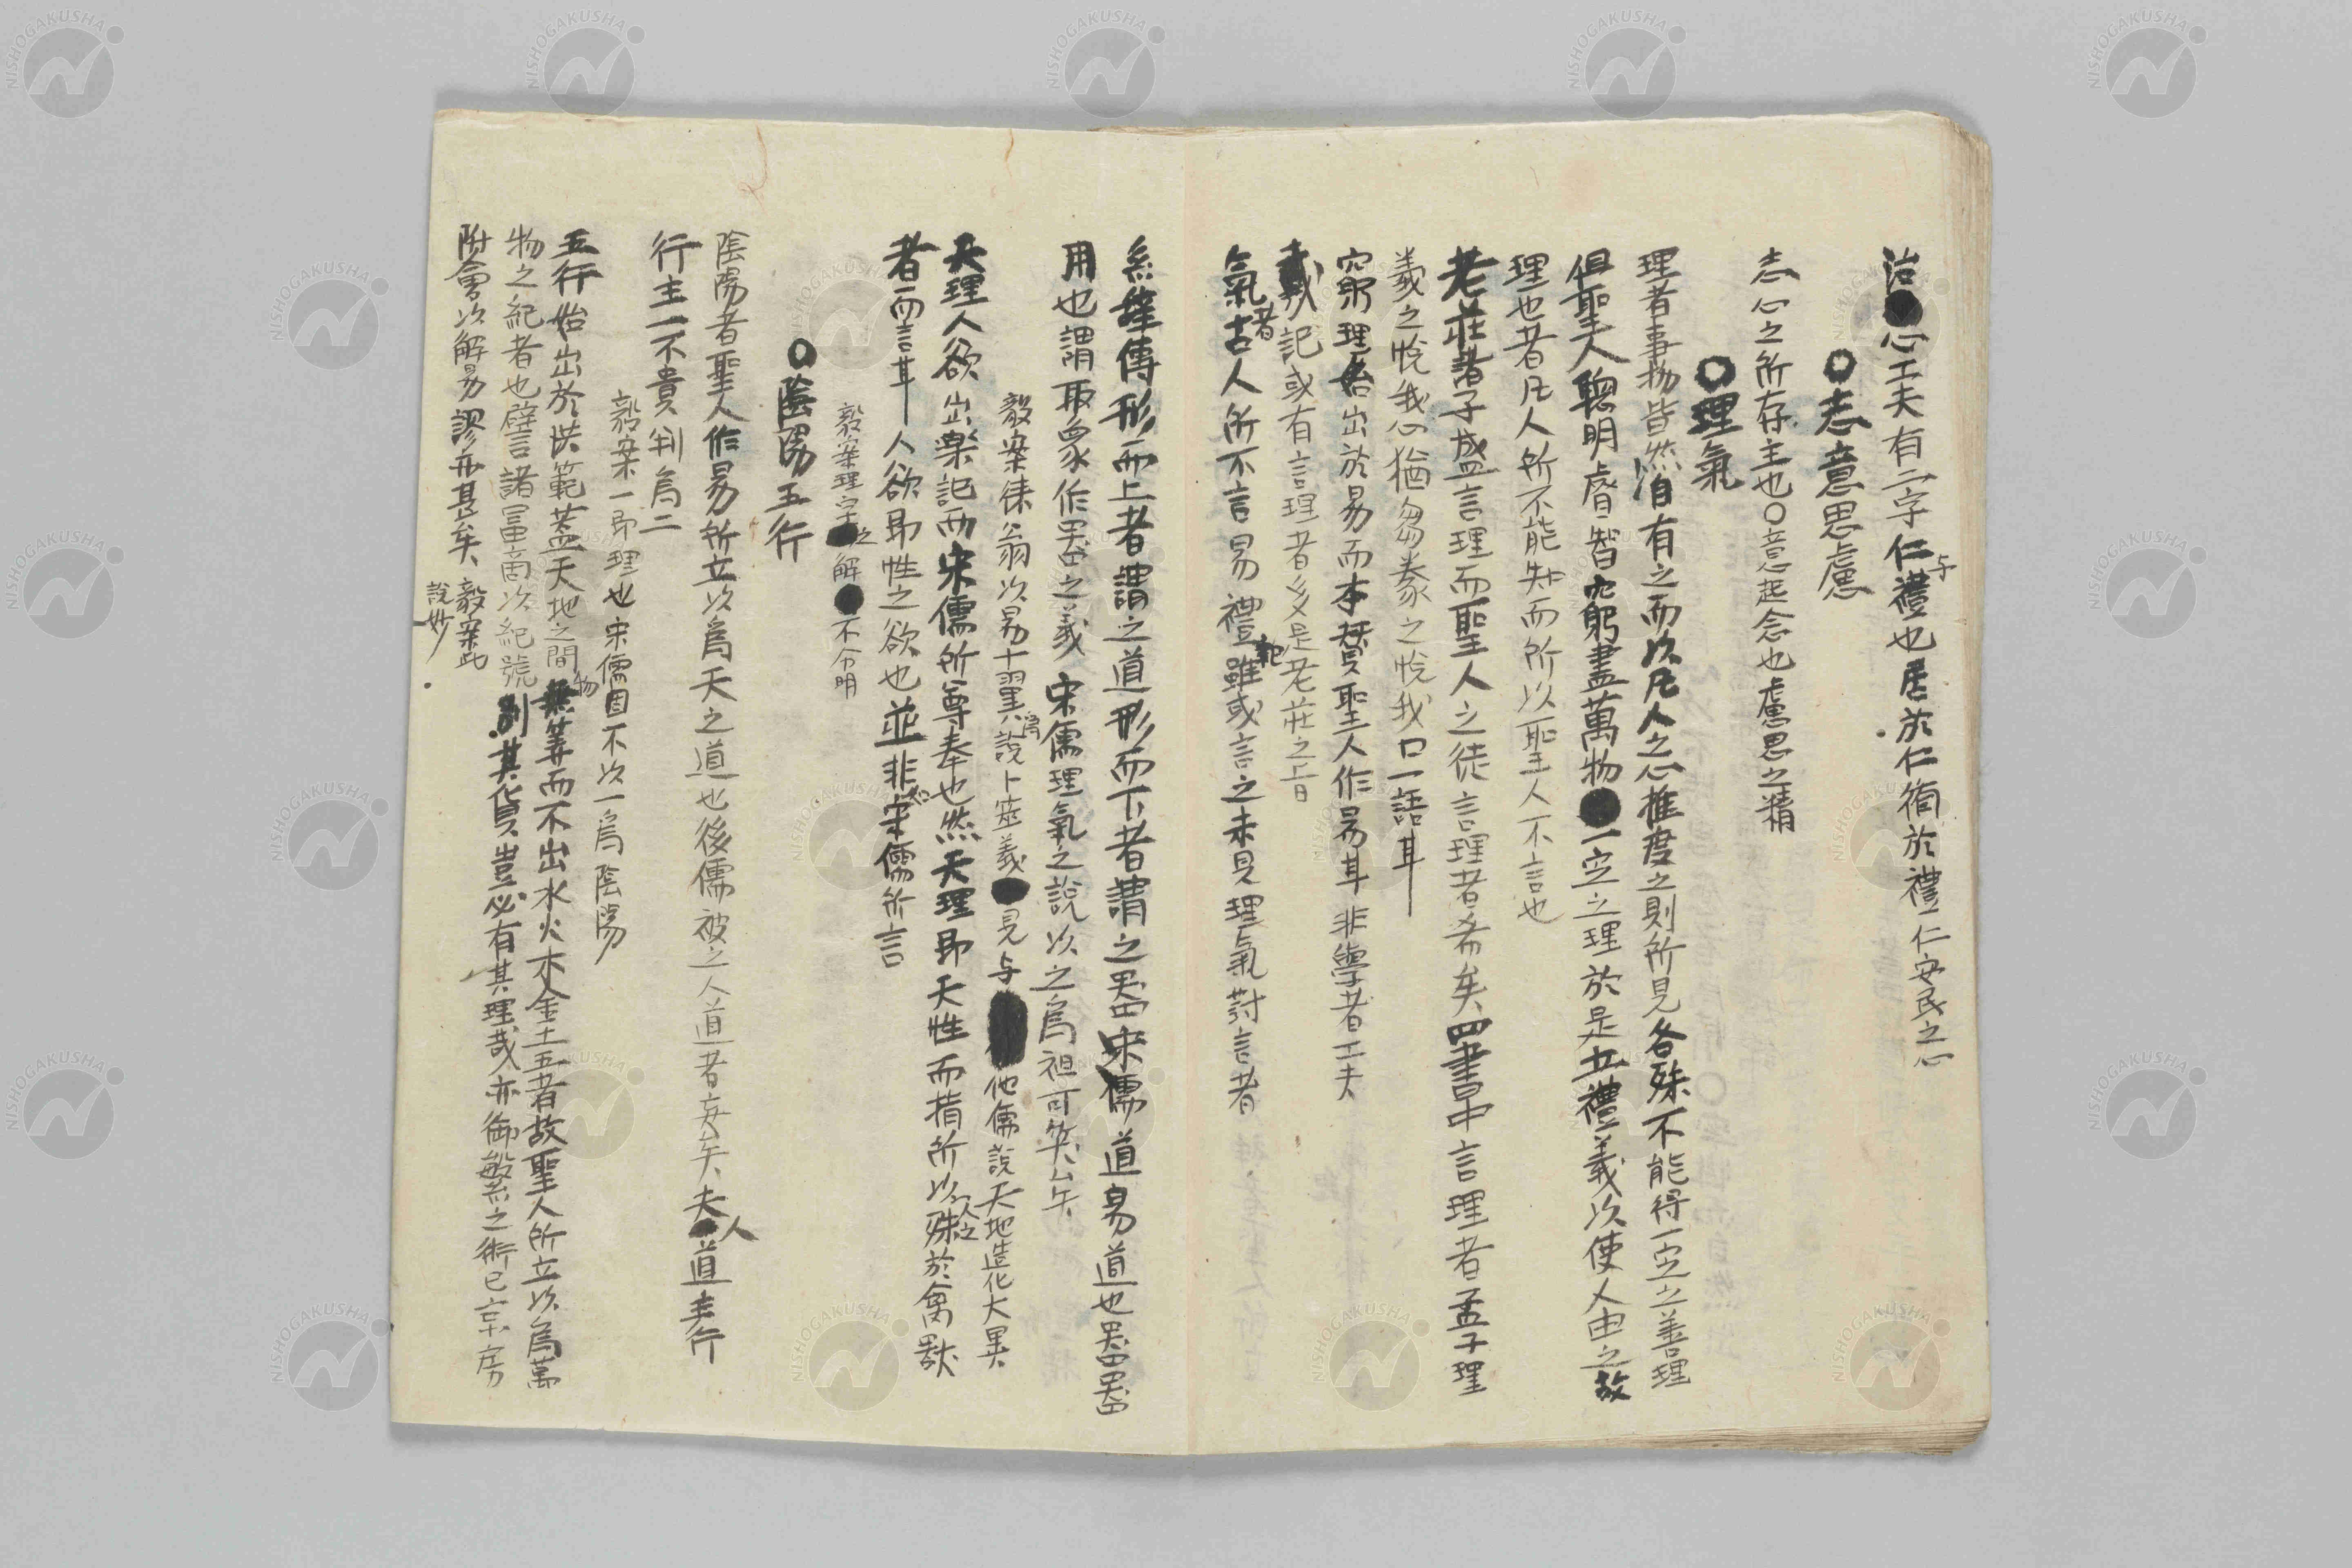 治心工夫有二字仁与禮也居於仁徇於禮仁安民之心
○志意思慮
志心之所存主也○意起念也慮思之精
○理氣
理者事物皆然自有之而以凡人之心推度之則所見各殊不能得一定之善理
但聖人聰明睿智能窮盡萬物一定之理於是立禮義以使人由之故
理也者凡人所不能知而所以聖人不言也
老莊諸子盛言理而聖人之徒言理者希矣四書中言理者孟子理
義之悅我心猶芻豢之悅我口一語耳
窮理始出於易而本贊聖人作易耳非學者工夫
戴記或有言理者多是老莊之旨
氣者古人所不言易禮記雖或言之未見理氣對言者
系辞傳形而上者謂之道形而下者謂之器宋儒道易道也器器
用也謂取象作器之義宋儒理氣之說以之爲祖可笑
毅案徠翁以易十翼爲說卜筮義見与他儒說天地造化大異
天理人欲出樂記而宋儒所尊奉也然天理即天性而指所以人之殊於禽獸
者而言耳人欲即性之欲也並非如宋儒所言
毅案理字之解不分明
○陰陽五行
陰陽者聖人作易所立以爲天之道也後儒被之人道者妄矣夫人道主行
行主一不貴判爲二
毅案一即理也宋儒固不以一爲陰陽
五行始出於洪範蓋天地之間物無筭而不出水火木金土五者故聖人所立以爲萬
物之紀者也譬諸富商以紀號別其貨豈必有其理哉亦御繁之術已京房
附會以解易謬亦甚矣 毅案此
說妙